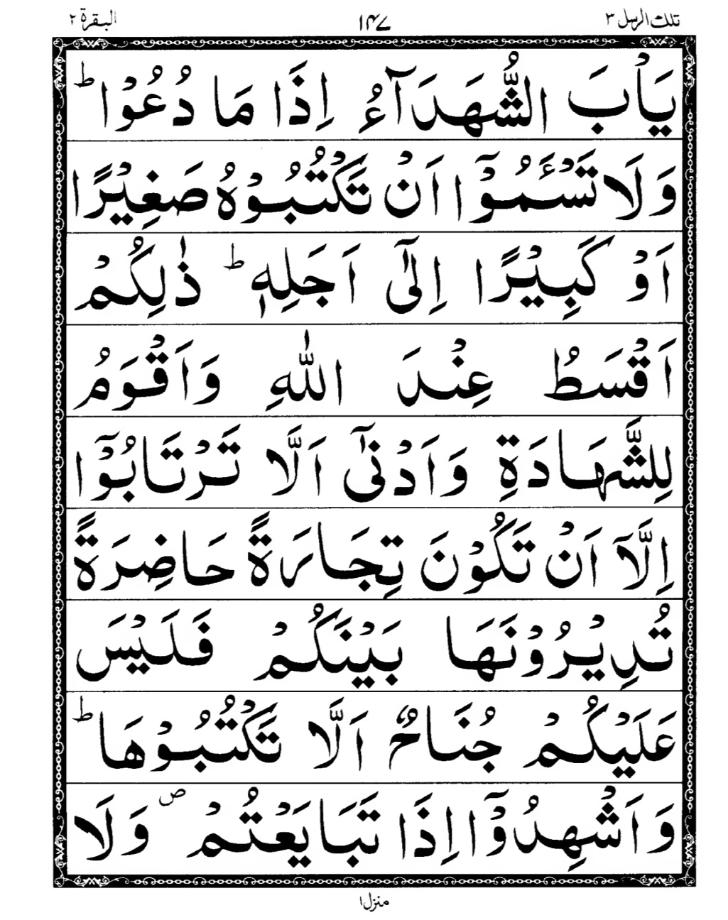 تلك الرسل ۳
۱۴۷
البقرة ۲
يَاْبَ الشُّهَدَآءُ اِذَا مَا دُعُوْا ؕ
وَلَا تَسْـَٔمُوْۤا اَنْ تَكْتُبُوْهُ صَغِيْرًا
اَوْ كَبِيْرًا اِلٰٓى اَجَلِهٖ ؕ ذٰلِكُمْ
اَقْسَطُ عِنْدَ اللّٰهِ وَاَقْوَمُ
لِلشَّهَادَةِ وَاَدْنٰٓى اَلَّا تَرْتَابُوْۤا
اِلَّاۤ اَنْ تَكُوْنَ تِجَارَةً حَاضِرَةً
تُدِيْرُوْنَهَا بَيْنَكُمْ فَلَيْسَ
عَلَيْكُمْ جُنَاحٌ اَلَّا تَكْتُبُوْهَا ؕ
وَاَشْهِدُوْۤا اِذَا تَبَايَعْتُمْ ۪ وَلَا
منزل ۱